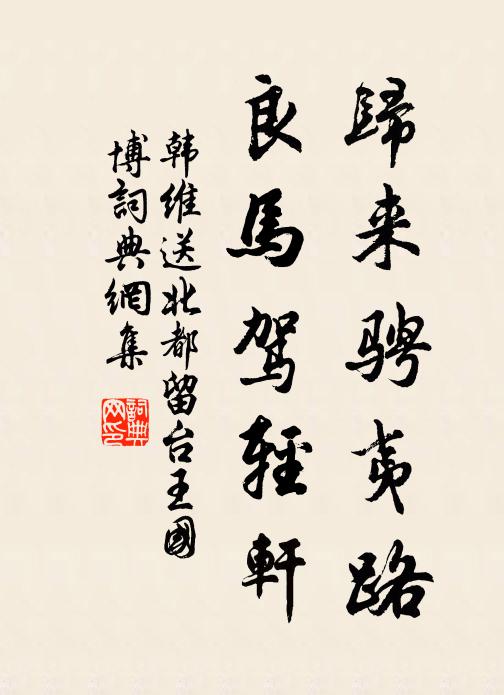 歸来騁夷路
良馬駕輕軒
韩維送北都留台王國
博詞典網集
詞典
网印